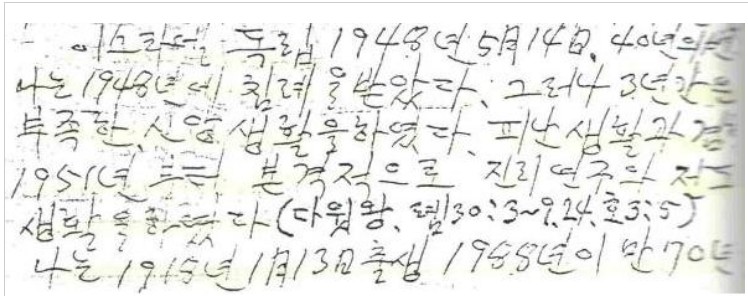 이스라엘 독립 1948년 5月14日. 40년의
나는 1948년에 침례을받았다. 그러나 3년간은
부족한, 신앙생활을하였다. 피난생활과 겸
1951년 부터 본격적으로 진리연구와 전도
생활을하였다 (다윗왕, 렘30:3~9.24, 호3:5)
나는 1918년 1月13日 출생 1988년이 만70년